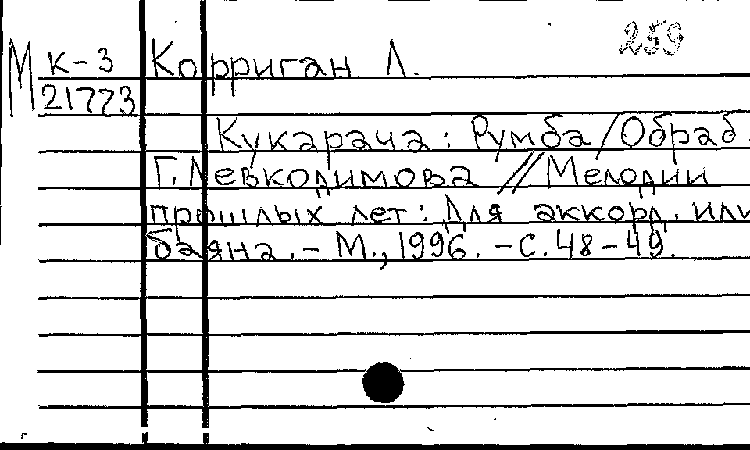 259
М К-3 Корриган Л.
21773
Кукарача: Румба/Обраб.
Г. Левкодимова // Мелодии
прошлых лет: Для аккорд. или
баяна. - М., 1996. - С. 48-49.